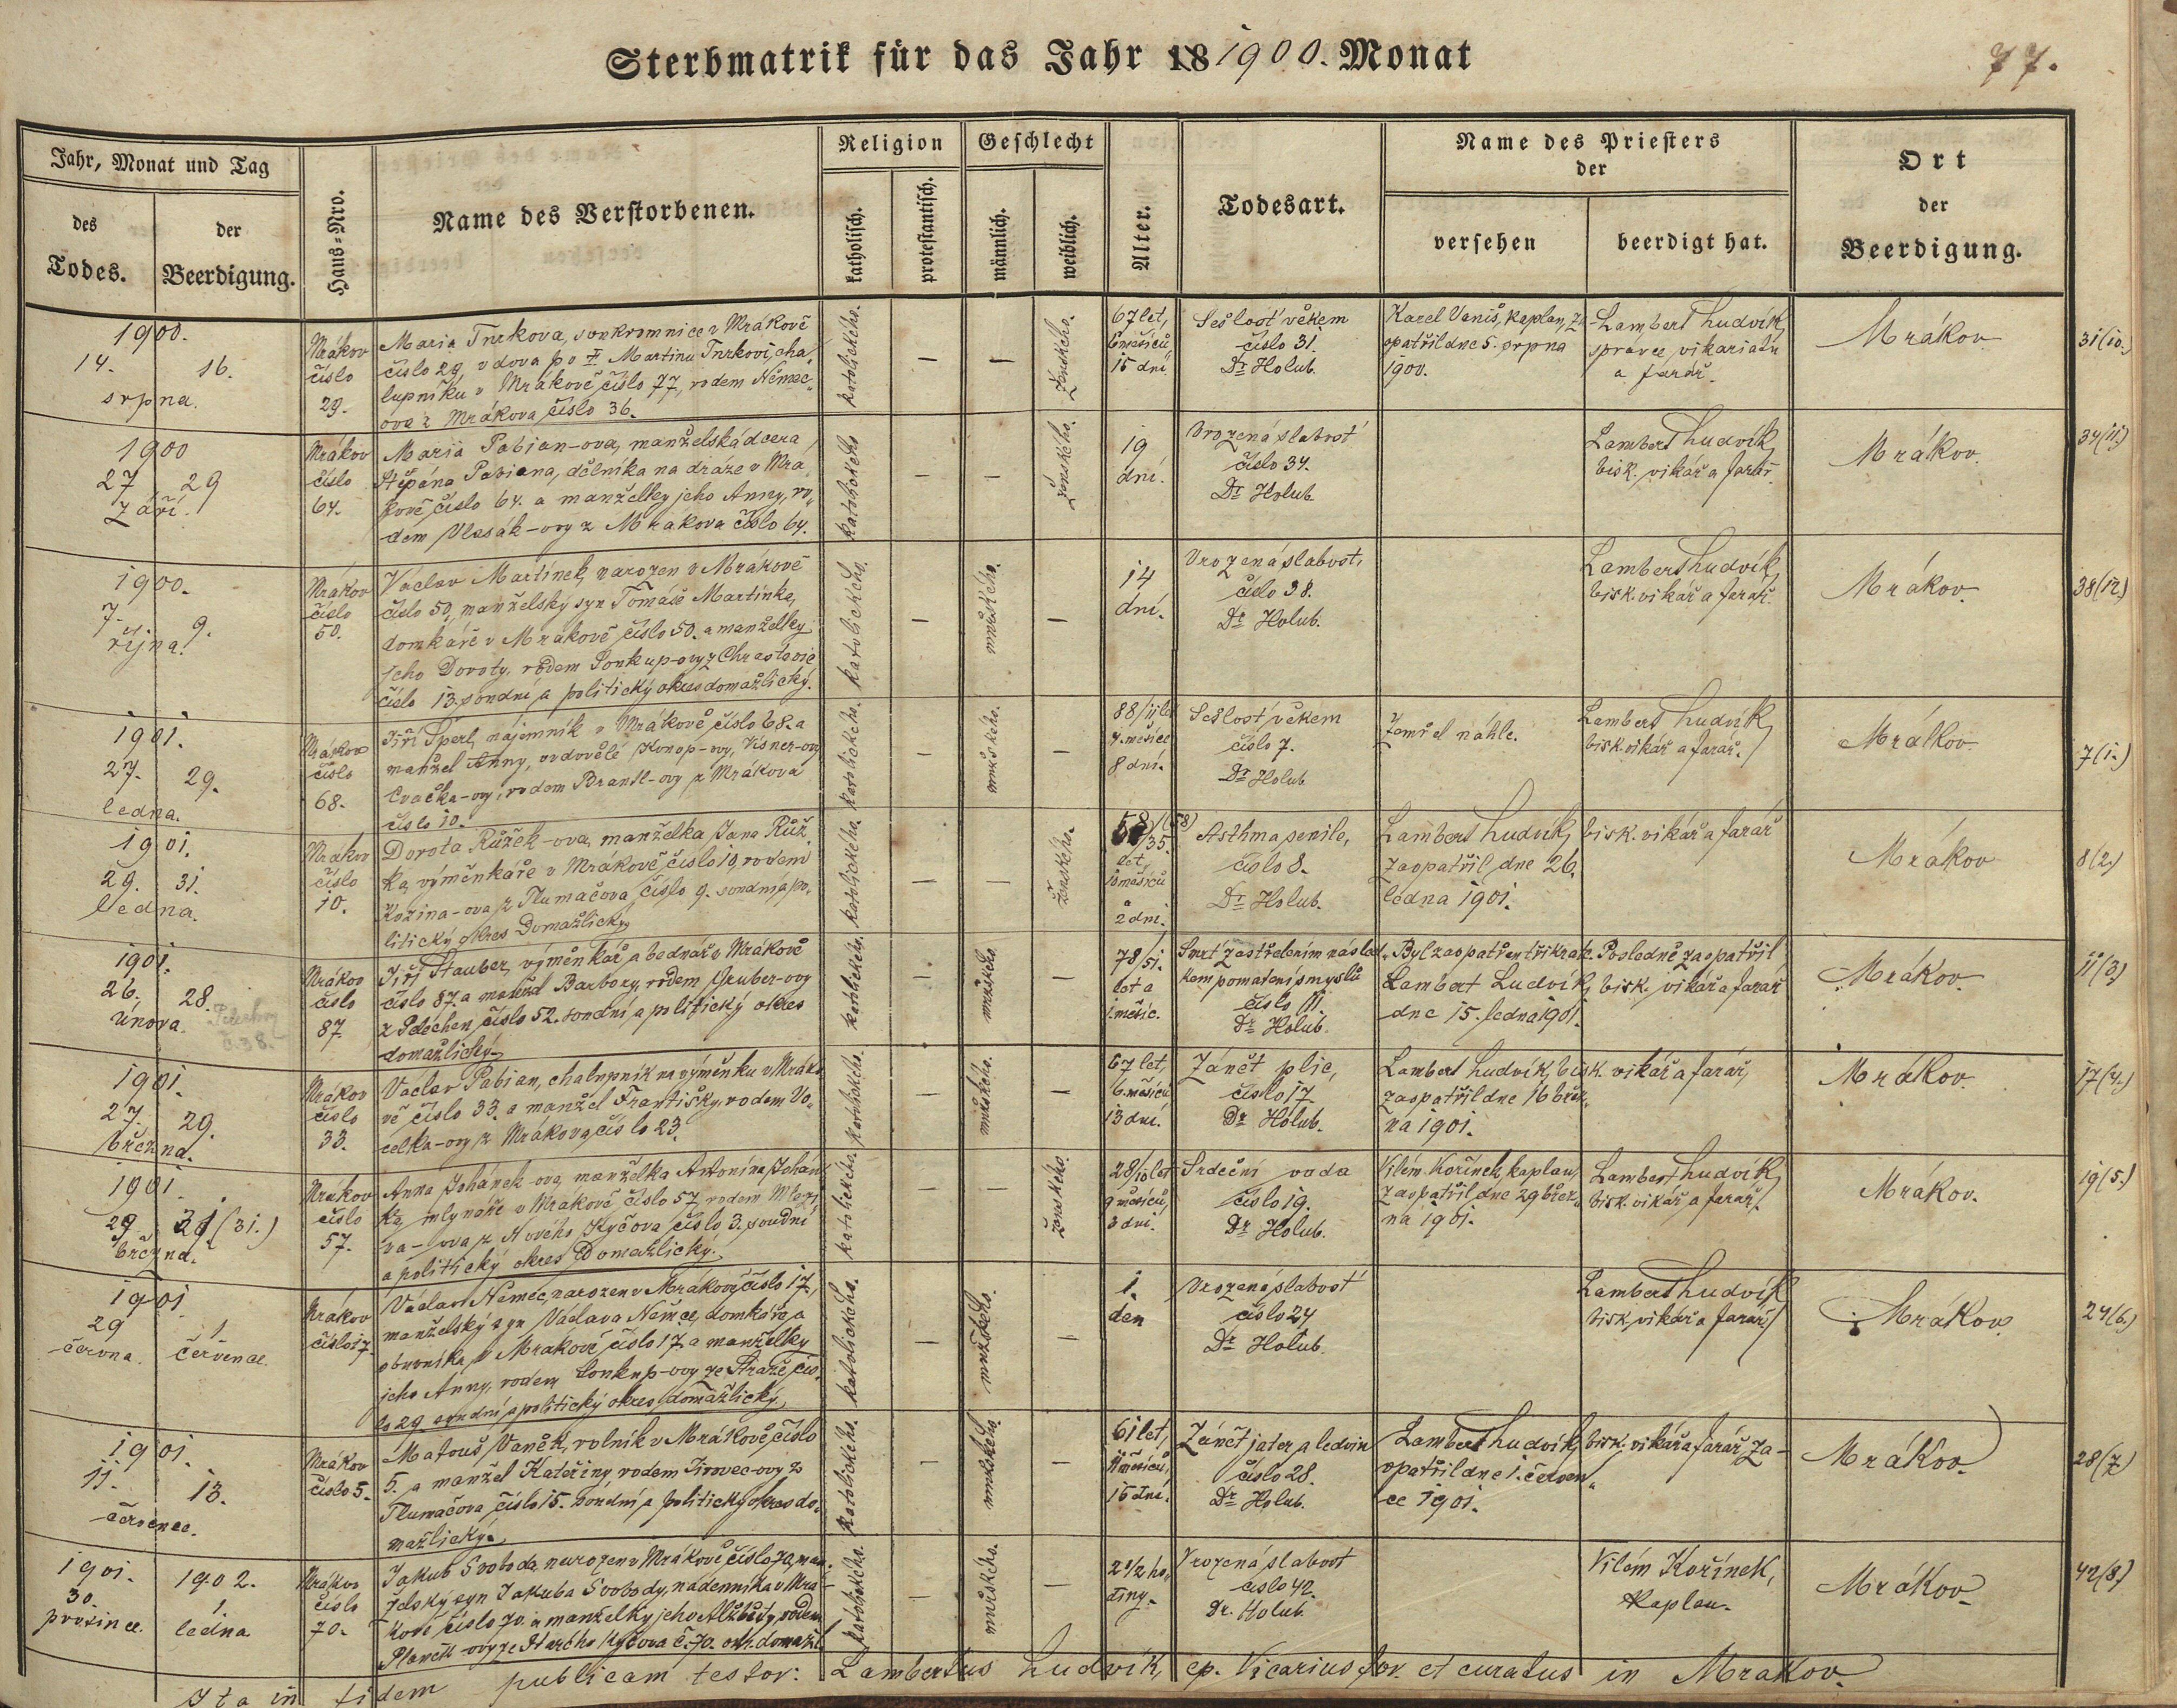 Sterbmatrik für das Jahr 18 1900. Monat
77.
Jahr, Monat und Tag
des Todes.
der Beerdigung.
Haus-Nro.
Name des Verstorbenen.
Religion
katholisch.
protestantisch.
Geschlecht
männlich.
weiblich.
Alter.
Todesart.
Name des Priesters
der
versehen
beerdigt hat.
Ort
der
Beerdigung.
1900.
14. 16.
srpna.
Mrákov
číslo
29.
Maria Turkova, soukromnice v Mrákově
číslo 29, vdova po Martinu Turkovi, cha„
lupníku v Mrákově číslo 77, rodem Němec„
ova z Mrákova číslo 36.
katolického.
—
—
ženského.
67 let,
6 měsíců
15 dní
Sešlosť věkem
číslo 31.
Dr Holub.
Karel Vaniš, kaplan, za
opatřil dne 5. srpna
1900.
Lambert Ludvík,
správce vikariatu
a farář.
Mrákov
31(10.)
1900
27 29
Září.
Mrákov
číslo
64.
Maria Pabian-ova, manželská dcera
Štěpána Pabiana, dělníka na dráze v Mrá„
kově číslo 64. a manželky jeho Anny, ro„
dem Vlasák-ovy z Mrákova číslo 64.
katolického
—
—
ženského.
19
dní.
Vrozená slabosť
číslo 34.
Dr Holub.
Lambert Ludvík
bisk. vikář a farář.
Mrákov.
34(11.)
1900.
7. 9.
října.
Mrákov
číslo
50.
Václav Martínek, narozen v Mrákově
číslo 50, manželský syn Tomáše Martínka,
domkáře v Mrákově číslo 50. a manželky
jeho Doroty, rodem Soukup-ovy z Chrastavic
číslo 13. soudní a politický okres domažlický.
katolického.
—
mužského.
—
14
dní.
Vrozená slabost,
číslo 38.
Dr Holub.
Lambert Ludvík,
bisk. vikář a farář.
Mrákov.
38(12.)
1901.
27. 29.
ledna.
Mrákov
číslo
68.
Jiří Šperl, nájemník v Mrákově číslo 68. a
manžel Anny, ovdovělé Konop-ovy, Visner-ovy
Cvačka-ovy, rodem Brantl-ovy z Mrákova
číslo 10.
katolického.
—
mužského.
—
88/11 let
4. měsíce
8 dní.
Sešlosť věkem
číslo 7.
Dr Holub
Zemřel náhle.
Lambert Ludvík,
bisk. vikář a farář.
Mrákov.
7(1.)
1901.
29. 31.
ledna.
Mrákov
číslo
10.
Dorota Růžek-ova, manželka Jana Růž„
ka, výměnkáře v Mrákově číslo 10, rodem
Kozina-ova z Tlumačova číslo 9. soudní a po„
litický okres Domažlický.
katolického.
—
—
ženského.
58/35. (58)
let,
10 měsíců
2 dni.
Asthma senile,
číslo 8.
Dr Holub.
Lambert Ludvík, bisk. vikář a farář
zaopatřil dne 26.
ledna 1901.
Mrákov
8(2.)
1901.
26. 28.
února.
Pelechny
č. 38.
Mrákov
číslo
87.
Jiří Stauber, výměnkář a bednář v Mrákově
číslo 87. a manžel Barbory, rodem Gruber-ovy
z Pelechen číslo 52. soudní a politický okres
domažlický.
katolického.
—
mužského.
—
78/51.
let a
1. měsíc.
Smrť zastřelením násled„
kem pomatení smyslů
číslo 11.
Dr Holub.
Byl zaopatřen třikrát. Posledně zaopatřil
Lambert Ludvík, bisk. vikář a farář
dne 15. ledna 1901.
Mrákov.
11(3.)
1901.
27. 29.
března.
Mrákov
číslo
33.
Václav Pabian, chalupník na výměnku v Mráko
vě číslo 33. a manžel Františky, rodem Vo„
celka-ovy z Mrákova, číslo 23.
katolického.
—
mužského.
—
67 let,
6. měsíců
13 dní.
Zánět plic,
číslo 17
Dr Holub.
Lambert Ludvík, bisk. vikář a farář,
zaopatřil dne 16 břez„
na 1901.
Mrákov.
17(4.)
1901.
29. 31 (31.)
března.
Mrákov
číslo
57.
Anna Johánek-ova, manželka Antonína Johán
ka, mlynáře v Mrákově číslo 57, rodem Mlezi
va-ova z Nového Kyčova číslo 3. soudní
a politický okres Domažlický.
katolického.
—
—
ženského.
28/10 let
9 měsíců,
3 dni.
Srdeční vada
číslo 19.
Dr Holub.
Vilém Kořínek, kaplan,
zaopatřil dne 29 břez„
na 1901.
Lambert Ludvík,
bisk. vikář a farář.
Mrákov.
19(5.)
1901.
29 1
června. července.
Mrákov
číslo 17.
Václav Němec, narozen v Mrákově číslo 17,
manželský syn Václava Němce, domkáře, a
obuvníka v Mrákově číslo 17. a manželky
jeho Anny, rodem Soukup-ovy ze Stráže čís„
lo 29 soudní a politický okres domažlický.
katolického.
—
mužského.
—
1.
den
Vrozená slabosť
číslo 24
Dr Holub.
Lambert Ludvík
bisk. vikář a farář.
Mrákov.
24(6.)
1901.
11. 13.
července.
Mrákov
číslo 5.
Matouš Vaněk, rolník v Mrákově číslo
5. a manžel Kateřiny, rodem Jirovec-ovy z
Tlumačova číslo 15. soudní a politický okres do„
mažlický.
katolického.
—
mužského.
—
61 let,
11 měsíců,
15 dní.
Zánět jater a ledvin
číslo 28.
Dr Holub.
Lambert Ludvík, bisk. vikář a farář, za-
opatřil dne 1. červen„
ce 1901.
Mrákov.
28(7.)
1901. 1902.
30. 1.
prosince. ledna.
Mrákov
číslo
70.
Jakub Svoboda, narozen v Mrákově číslo 70, man„
želský syn Jakuba Svobody, nádenníka v Mrá-
kově číslo 70. a manželky jeho Alžběty, rodem
ovy ze Starého Kyčova č. 70. okr. domažl.
katolického.
—
mužského.
—
2 1/2 ho„
diny.
Vrozená slabost
číslo 42
Dr. Holub.
Vilém Kořínek,
kaplan.
Mrákov.
42(8.)
Ita in fidem publicam testor: Lambertus Ludvík, ep. Vicarius for. et curatus in Mrakov.